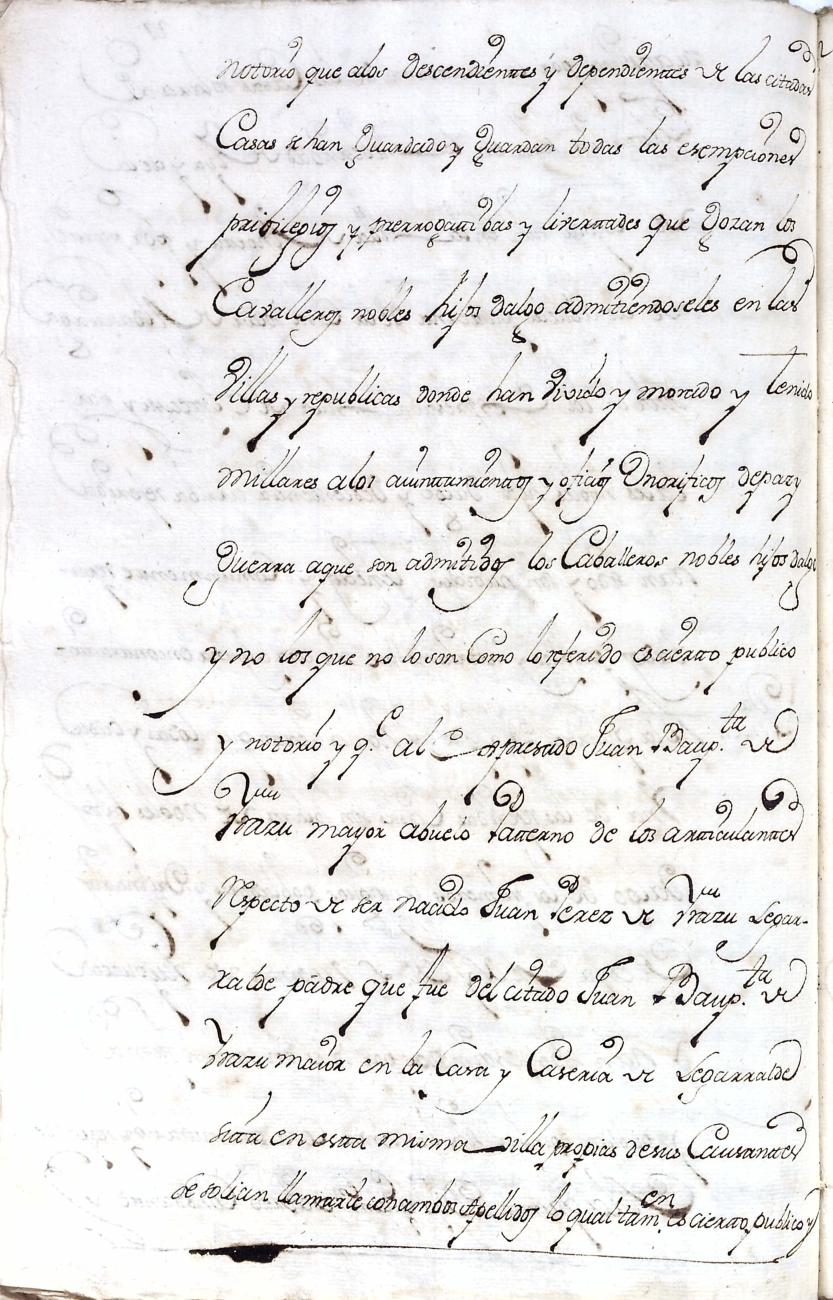 notorio que alos descendientes y dependientes de las citadas
Casas se han Guardado y Guardan todas las esempciones
pribilegios y prerrogatibas y livertades que Gozan los
Cavalleros nobles hijos dalgo admitiendoseles en las
Villas y republicas donde han vivido y morado y tenido
millares a los aiuntamientos y oficios Onorificos de paz y
Guerra a que son admitidos los Caballeros nobles hijos dalgo
y no los que no lo son Como lo referido es cierto publico
y notorio y q.e al expresado Juan Baup.ta de
Yrazu mayor abuelo Paterno de los articulantes
Respecto de ser nacido Juan Perez de Yrazu Legar-
ralde padre que fue del citado Juan Baup.ta de
Yrazu maior en la Casa y Caseria de Legarralde
sita en esta misma villa propias de sus Causantes
se solian llamarle con ambos Apellidos lo qual tam.en es cierto, publico y